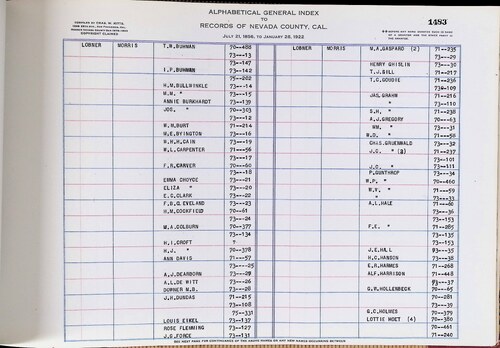 ALPHABETICAL GENERAL INDEX
TO
RECORDS OF NEVADA COUNTY, CAL.
JULY 21, 1856, TO JANUARY 28, 1922
COPYRIGHT CLAIMED
1483
LOBNER MORRIS T.W.BUHMAN 70--488
73---13
73--147
I.F.BUHMAN 73--142
75--202
H.M.BULLWINKLE 73---14
M.M. " 73---15
ANNIE BURKHARDT 73--139
JOS. " 70--303
73--12
W.H.BURT 71--214
M.E.BYINGTON 73---16
R.H.M.CAIN 73--19
W.L.CARPENTER 71--56
73---17
F.R.CARVER 70--60
73---18
EMMA CHOYCE 73---21
ELIZA " 73---20
E.G.CLARK 73---22
F.B.Q.EVELAND 73---23
H.M.COOKFIELD 70--61
73--24
M.A.COLBURN 70--377
73--134
H.I.CROFT ?
H.J. " 70--378
ANN DAVIS 71--57
73----25
A.J.DEARBORN 73---29
A.L.DE WITT 73---26
DOWNER M.B. 73---28
J.H.DUNDAS 71--215
73--108
75--331
LOUIS EIKEL 73--137
ROSE FLEMMING 73--127
J.G.FORCE 73--131
LOBNER MORRIS M.A.GASFARD (2) 71--235
73---29
HENRY GHISLIN 73---30
T.J.GILL 71--217
T.C.GOUDIE 71--236
73--109
JAS.GRAHN 71--216
" 73--110
S.H. " 71--238
A.J.GREGORY 70--63
WM. " 73---31
W.D. " 71--58
CHAS.GRUENWALD 73---32
J.C. " (3) 71--237
73--101
J.C. " 73--111
P.GUNTHROP 73---34
W.P. " 70--460
W.V. " 71---59
" 73---33
A.L.HALE 71---60
73---36
73--153
F.E. " 71--285
73--135
73--153
J.E.HALL 93---35
H.C.HANSON 73---38
E.R.HARMES 71--268
ALF.HARRISON 71--448
73--37
G.W.HOLLENBECK 70--46
70--281
73---39
G.C.HOLMES 70--379
LOTTIE HOET (4) 70--380
70--461
71--240